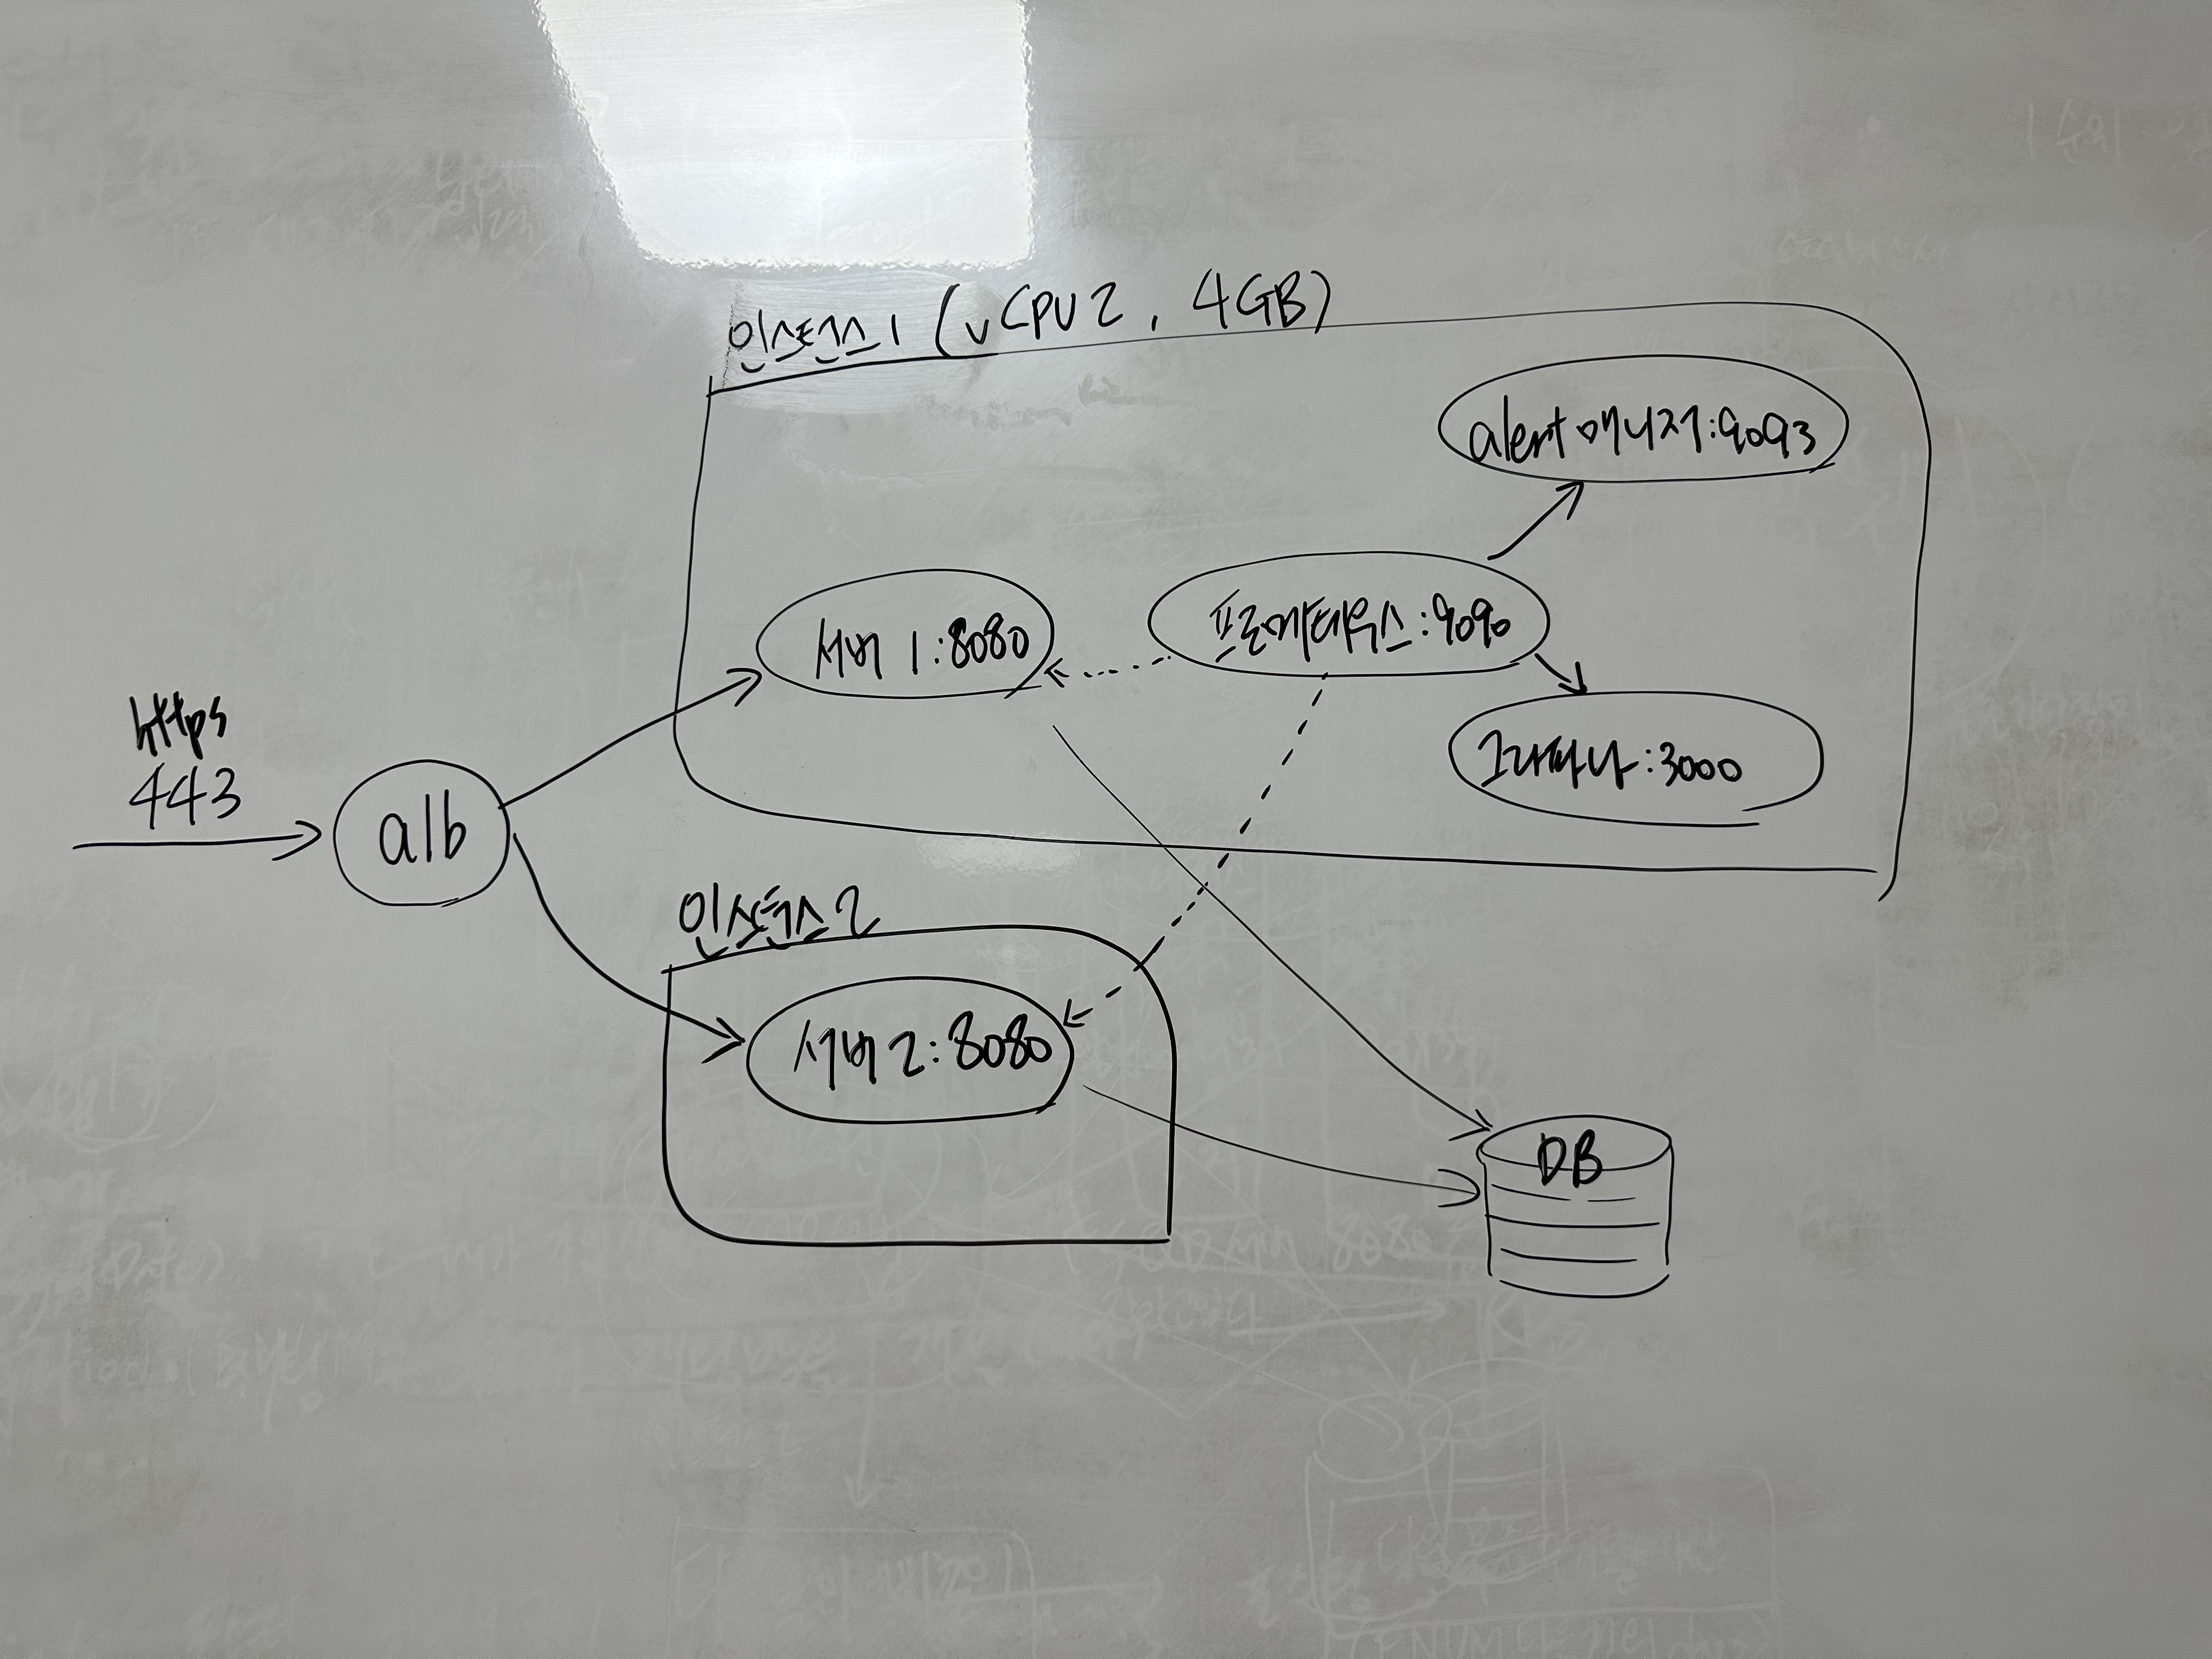 인스턴스1 (vCPU2, 4GB)
alert매니저:9093
서버1:8080
프로메테우스:9090
그라파나:3000
https
443
alb
인스턴스2
서버2:8080
DB